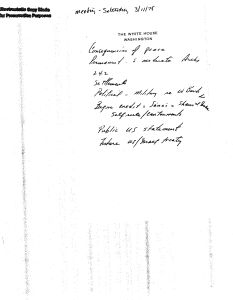 Electrostatic Copy Made
for Preservation Purposes
meeting - Saturday 3/11/78
THE WHITE HOUSE
WASHINGTON
Consequences of peace
Permanent & moderate Arabs
242
Settlements
Political - Military in W Bank
Begin credit - Sinai -
Self-rule/
Public US statement
Future US/Israel treaty